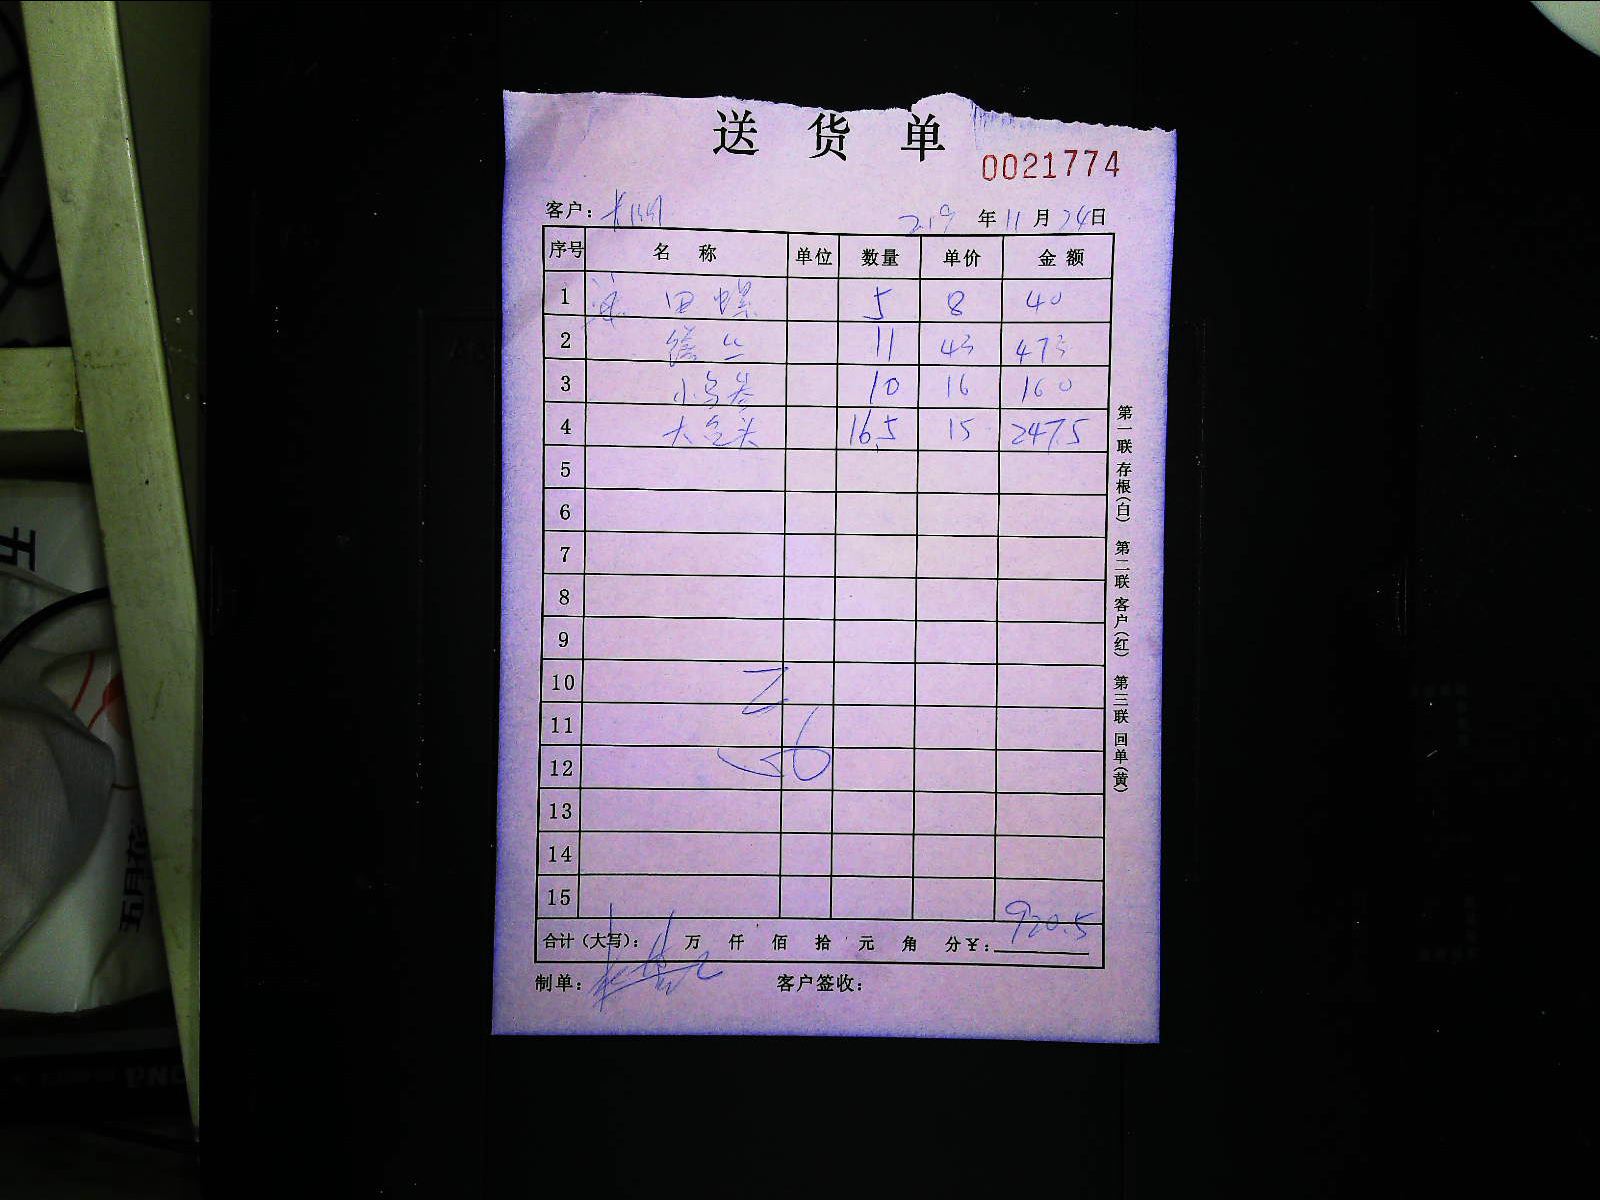 送货单
0021774
客户：
2019年11月24日
序号 名称 单位 数量 单价 金额
1 田螺 5 8 40
2 11 43 473
3 小 10 16 160
4 大 头 16.5 15 247.5
5
6
7
8
9
10
11
12
13
14
15
920.5
合计（大写）： 万 仟 佰 拾 元 角 分￥：
制单： 客户签收：
第一联 存根（白） 第二联 客户（红） 第三联 回单（黄）
五